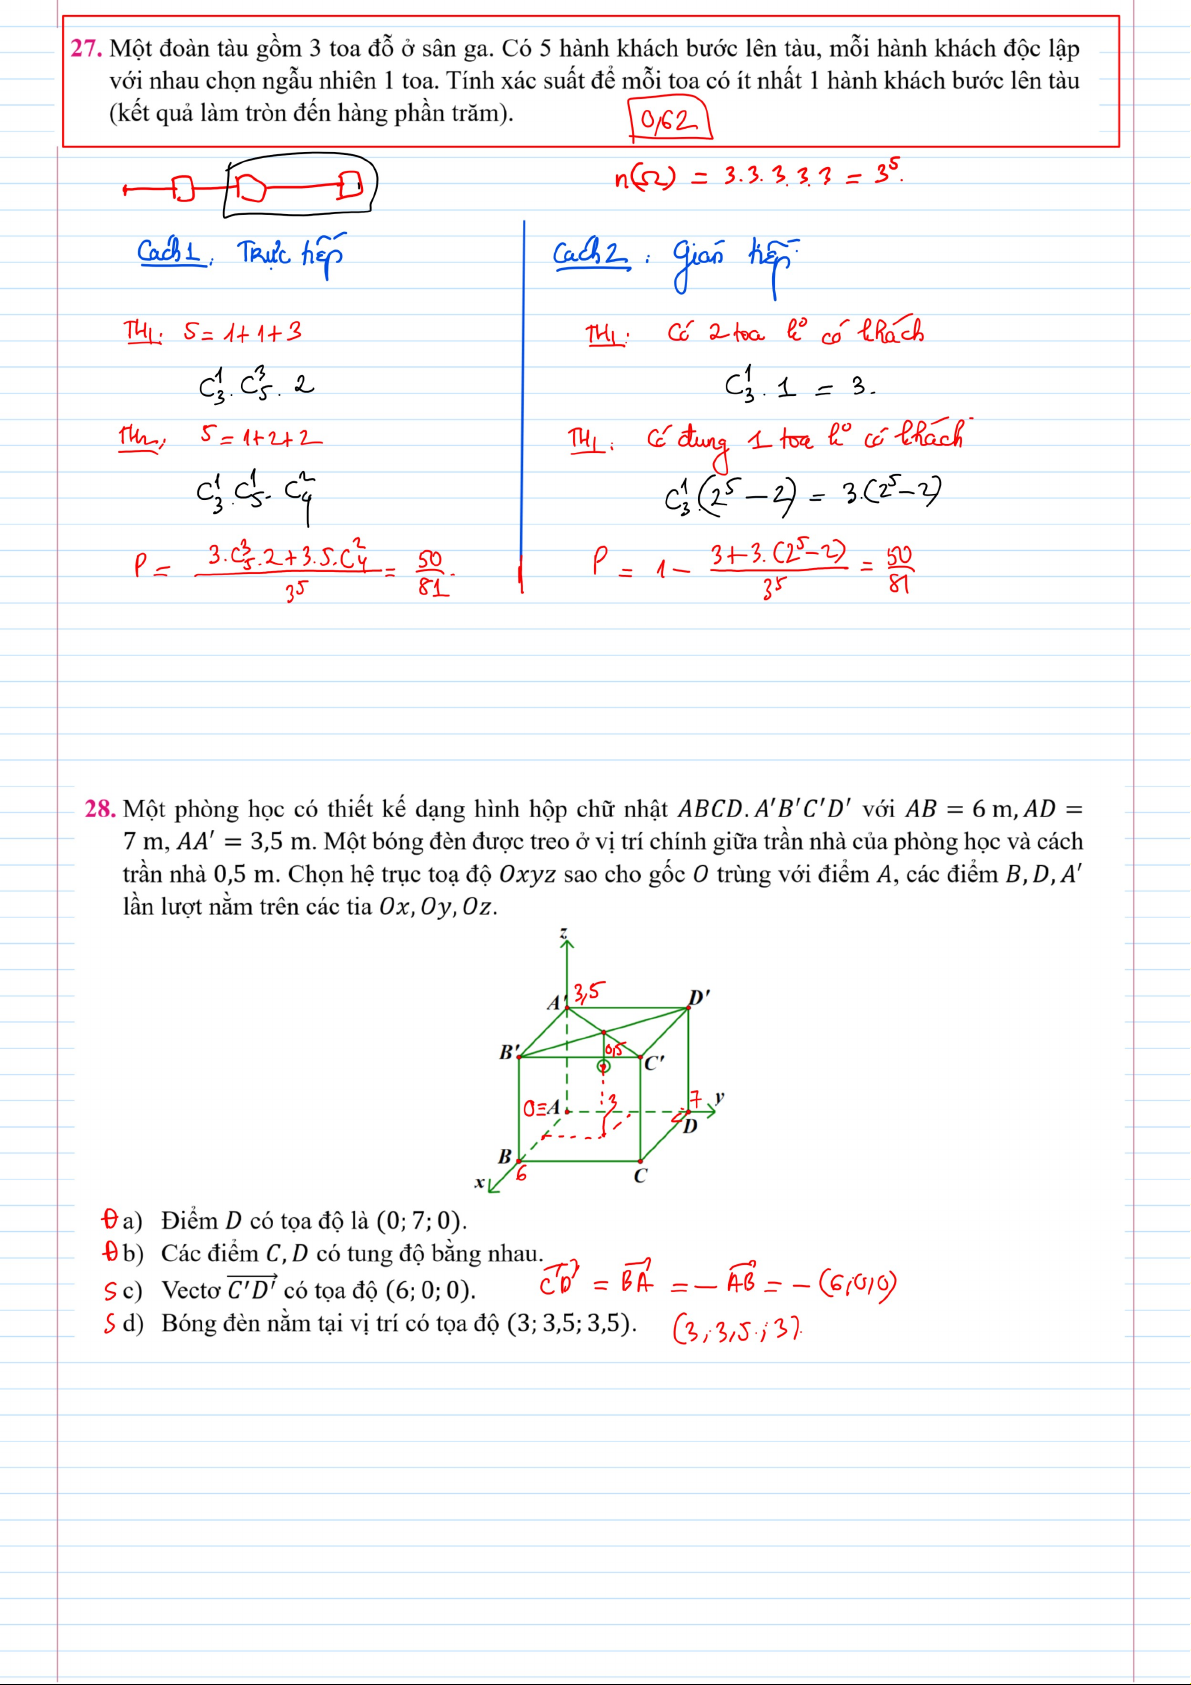 27. Một đoàn tàu gồm 3 toa đỗ ở sân ga. Có 5 hành khách bước lên tàu, mỗi hành khách độc lập
với nhau chọn ngẫu nhiên 1 toa. Tính xác suất để mỗi toa có ít nhất 1 hành khách bước lên tàu
(kết quả làm tròn đến hàng phần trăm).
0,62
n(Ω) = 3.3.3.3.3 = 3⁵.
Cách 1: Trực tiếp
Cách 2: Gián tiếp
TH1: 5 = 1+1+3
TH1: Có 2 toa k° có khách
C₃¹.C₅³.2
C₃¹.1 = 3.
TH2: 5 = 1+2+2
TH1: Có đúng 1 toa k° có khách
C₃¹.C₅¹.C₄²
C₃¹.(2⁵−2) = 3.(2⁵−2)
P = (3.C₅³.2+3.5.C₄²)/3⁵ = 50/81.
P = 1 − (3+3.(2⁵−2))/3⁵ = 50/81
28. Một phòng học có thiết kế dạng hình hộp chữ nhật ABCD.A′B′C′D′ với AB = 6 m, AD =
7 m, AA′ = 3,5 m. Một bóng đèn được treo ở vị trí chính giữa trần nhà của phòng học và cách
trần nhà 0,5 m. Chọn hệ trục toạ độ Oxyz sao cho gốc O trùng với điểm A, các điểm B, D, A′
lần lượt nằm trên các tia Ox, Oy, Oz.
z
A′ 3,5 D′
B′ 0,5 C′
O≡A 3 7 y
D
B
x 6 C
Đ a) Điểm D có tọa độ là (0; 7; 0).
Đ b) Các điểm C, D có tung độ bằng nhau.
S c) Vectơ C′D′ có tọa độ (6; 0; 0). C′D′ = BA = −AB = −(6;0;0)
S d) Bóng đèn nằm tại vị trí có tọa độ (3; 3,5; 3,5). (3; 3,5; 3).